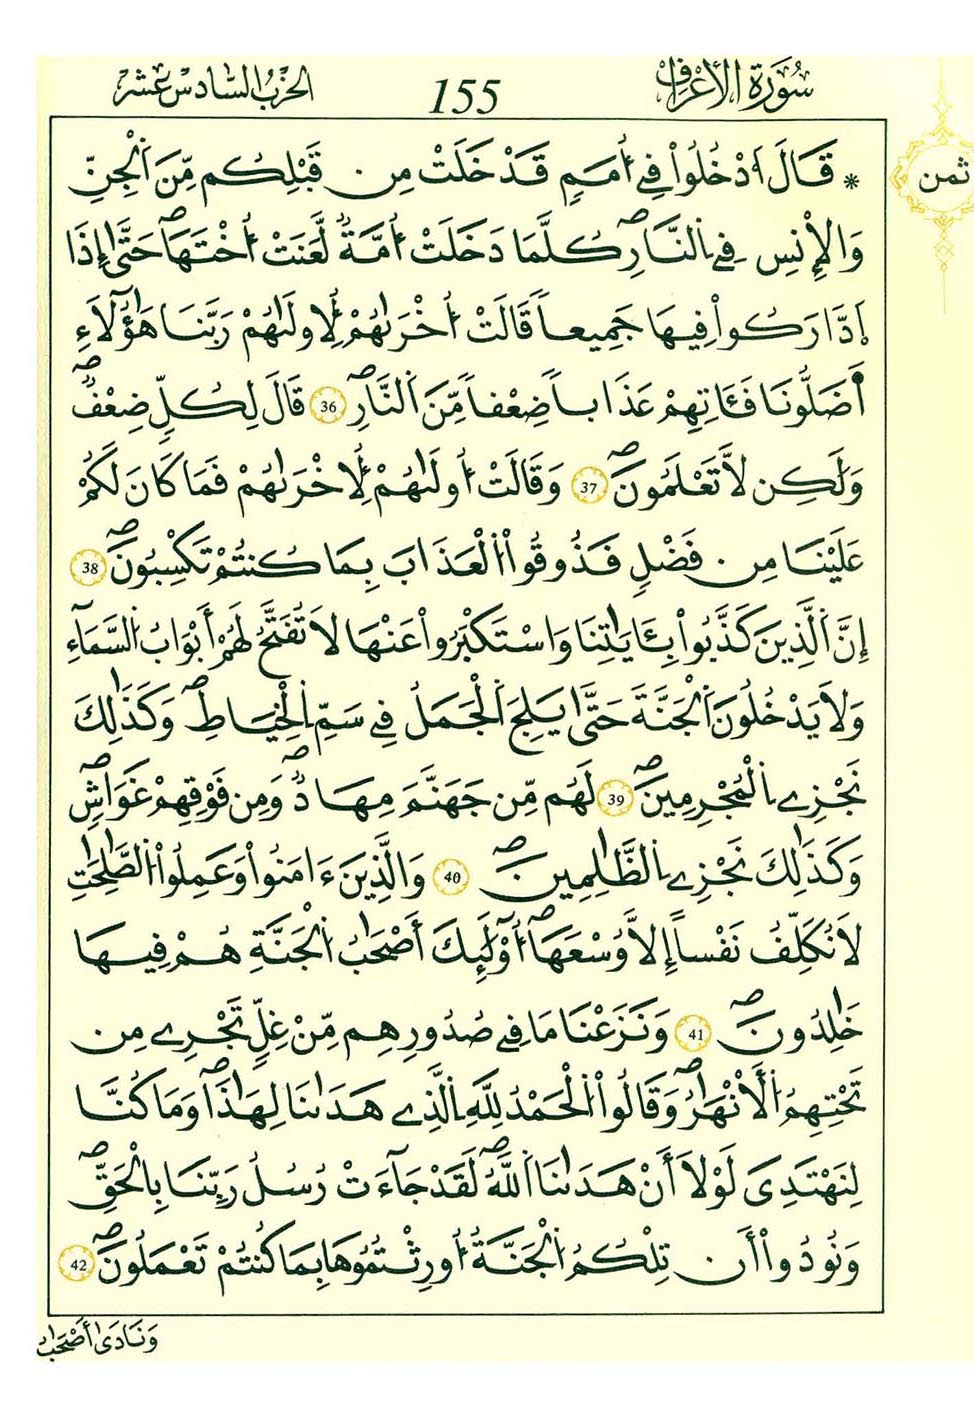 سُورَةُ الأَعْرَافِ 155 الحِزْبُ السَّادِسَ عَشَرَ
ثمن
* قَالَ اَدْخُلُواْ فِے أُمَمٖ قَدْ خَلَتْ مِن قَبْلِكُم مِّنَ اَلْجِنِّ
وَالْإِنسِ فِے اِلنَّارِۖ كُلَّمَا دَخَلَتُ امَّةٞ لَّعَنَتُ اخْتَهَاۖ حَتَّىٰ إِذَا
اَدَّارَكُواْ فِيهَا جَمِيعاٗ قَالَتُ اخْرَىٰهُمْ لِأُولَىٰهُمْ رَبَّنَا هَٰٓؤُلَآءِ
أَضَلُّونَا فَـَٔاتِهِمْ عَذَاباٗ ضِعْفاٗ مِّنَ اَلنَّارِۖ 36 قَالَ لِكُلّٖ ضِعْفٞۖ
وَلَٰكِن لَّا تَعْلَمُونَۖ 37 وَقَالَتُ اولَىٰهُمْ لِأُخْرَىٰهُمْ فَمَا كَانَ لَكُمْ
عَلَيْنَا مِن فَضْلٖ فَذُوقُواْ اُلْعَذَابَ بِمَا كُنتُمْ تَكْسِبُونَۖ 38
إِنَّ اَلذِينَ كَذَّبُواْ بِـَٔايَٰتِنَا وَاسْتَكْبَرُواْ عَنْهَا لَا تُفَتَّحُ لَهُمُ أَبْوَابُ اُلسَّمَآءِ
وَلَا يَدْخُلُونَ اَلْجَنَّةَ حَتَّىٰ يَلِجَ اَلْجَمَلُ فِے سَمِّ اِلْخِيَاطِۖ وَكَذَٰلِكَ
نَجْزِے اِلْمُجْرِمِينَۖ 39 لَهُم مِّن جَهَنَّمَ مِهَادٞۖ وَمِن فَوْقِهِمْ غَوَاشٖۖ
وَكَذَٰلِكَ نَجْزِے اِلظَّٰلِمِينَۖ 40 وَالذِينَ ءَامَنُواْ وَعَمِلُواْ اُلصَّٰلِحَٰتِ
لَا نُكَلِّفُ نَفْساً إِلَّا وُسْعَهَاۖ أُوْلَٰٓئِكَ أَصْحَٰبُ اُلْجَنَّةِ هُمْ فِيهَا
خَٰلِدُونَۖ 41 وَنَزَعْنَا مَا فِے صُدُورِهِم مِّنْ غِلّٖ تَجْرِے مِن
تَحْتِهِمُ اُلْأَنْهَٰرُۖ وَقَالُواْ اُلْحَمْدُ لِلهِ اِلذِے هَدَىٰنَا لِهَٰذَاۖ وَمَا كُنَّا
لِنَهْتَدِىَ لَوْلَا أَنْ هَدَىٰنَا اَللَّهُۖ لَقَدْ جَآءَتْ رُسُلُ رَبِّنَا بِالْحَقِّۖ
وَنُودُواْ أَن تِلْكُمُ اُلْجَنَّةُ أُورِثْتُمُوهَا بِمَا كُنتُمْ تَعْمَلُونَۖ 42
وَنَادَىٰ أَصْحَٰبُ